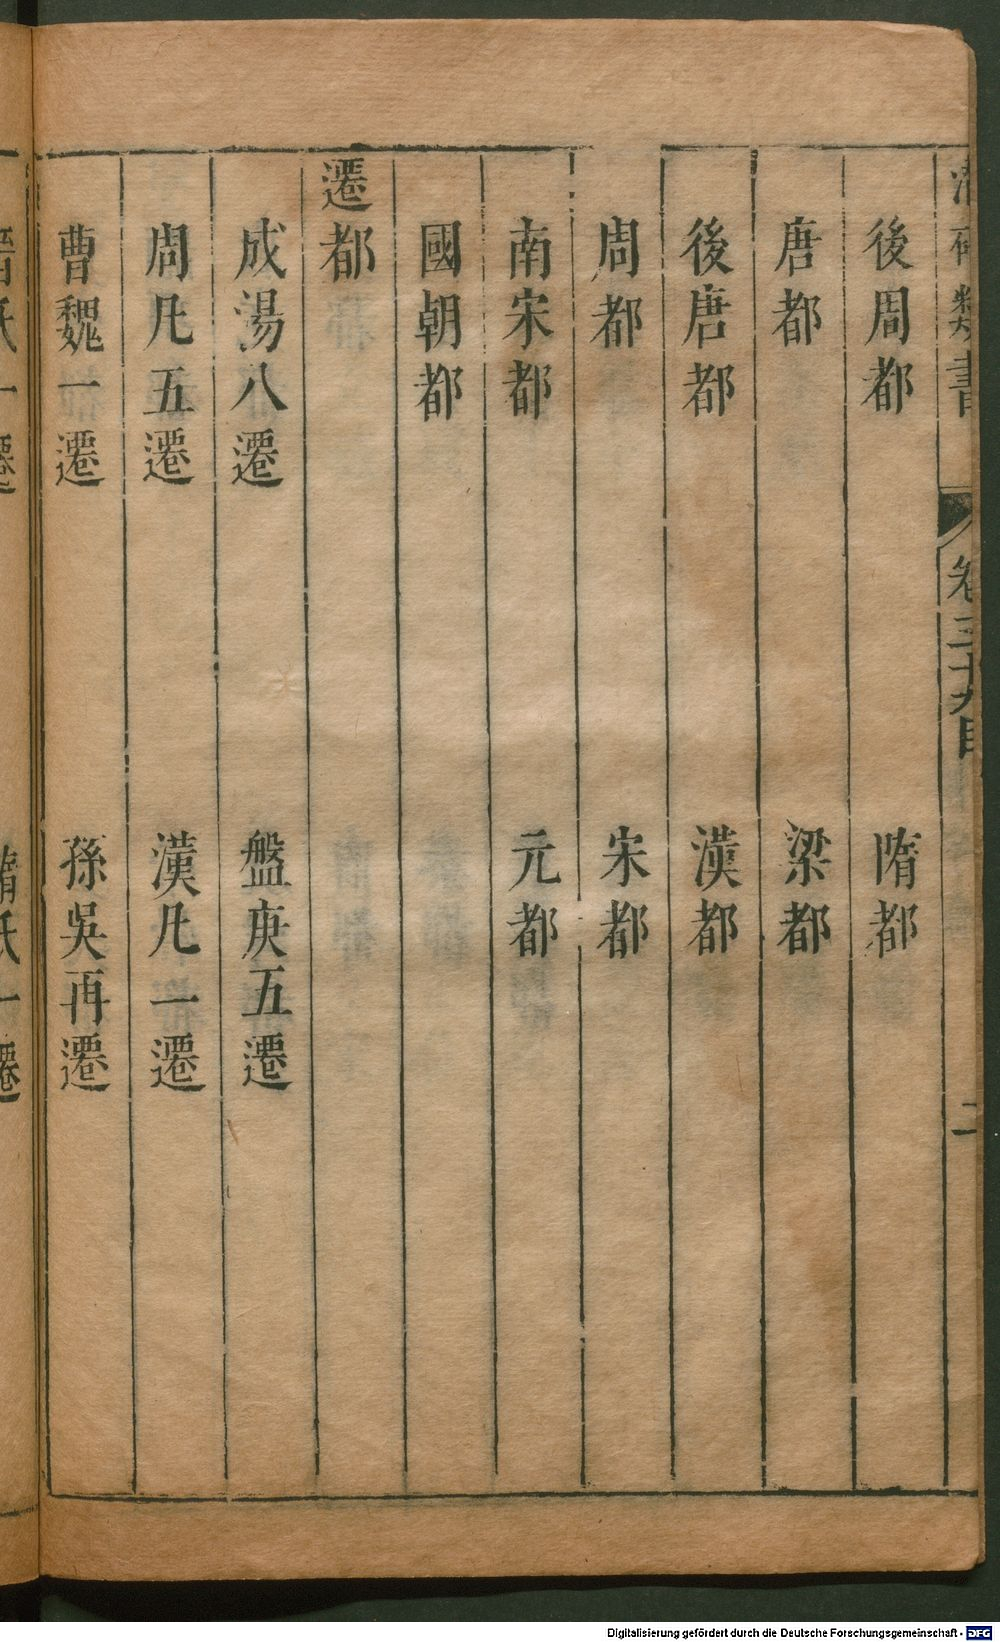 類書 卷三十 目 二
後周都 隋都
唐都 梁都
後唐都 漢都
周都 宋都
南宋都 元都
國朝都
遷都
成湯八遷 盤庚五遷
周凡五遷 漢凡一遷
曹魏一遷 孫吳再遷
氏一遷 氏一遷
Digitalisierung gefördert durch die Deutsche Forschungsgemeinschaft - DFG